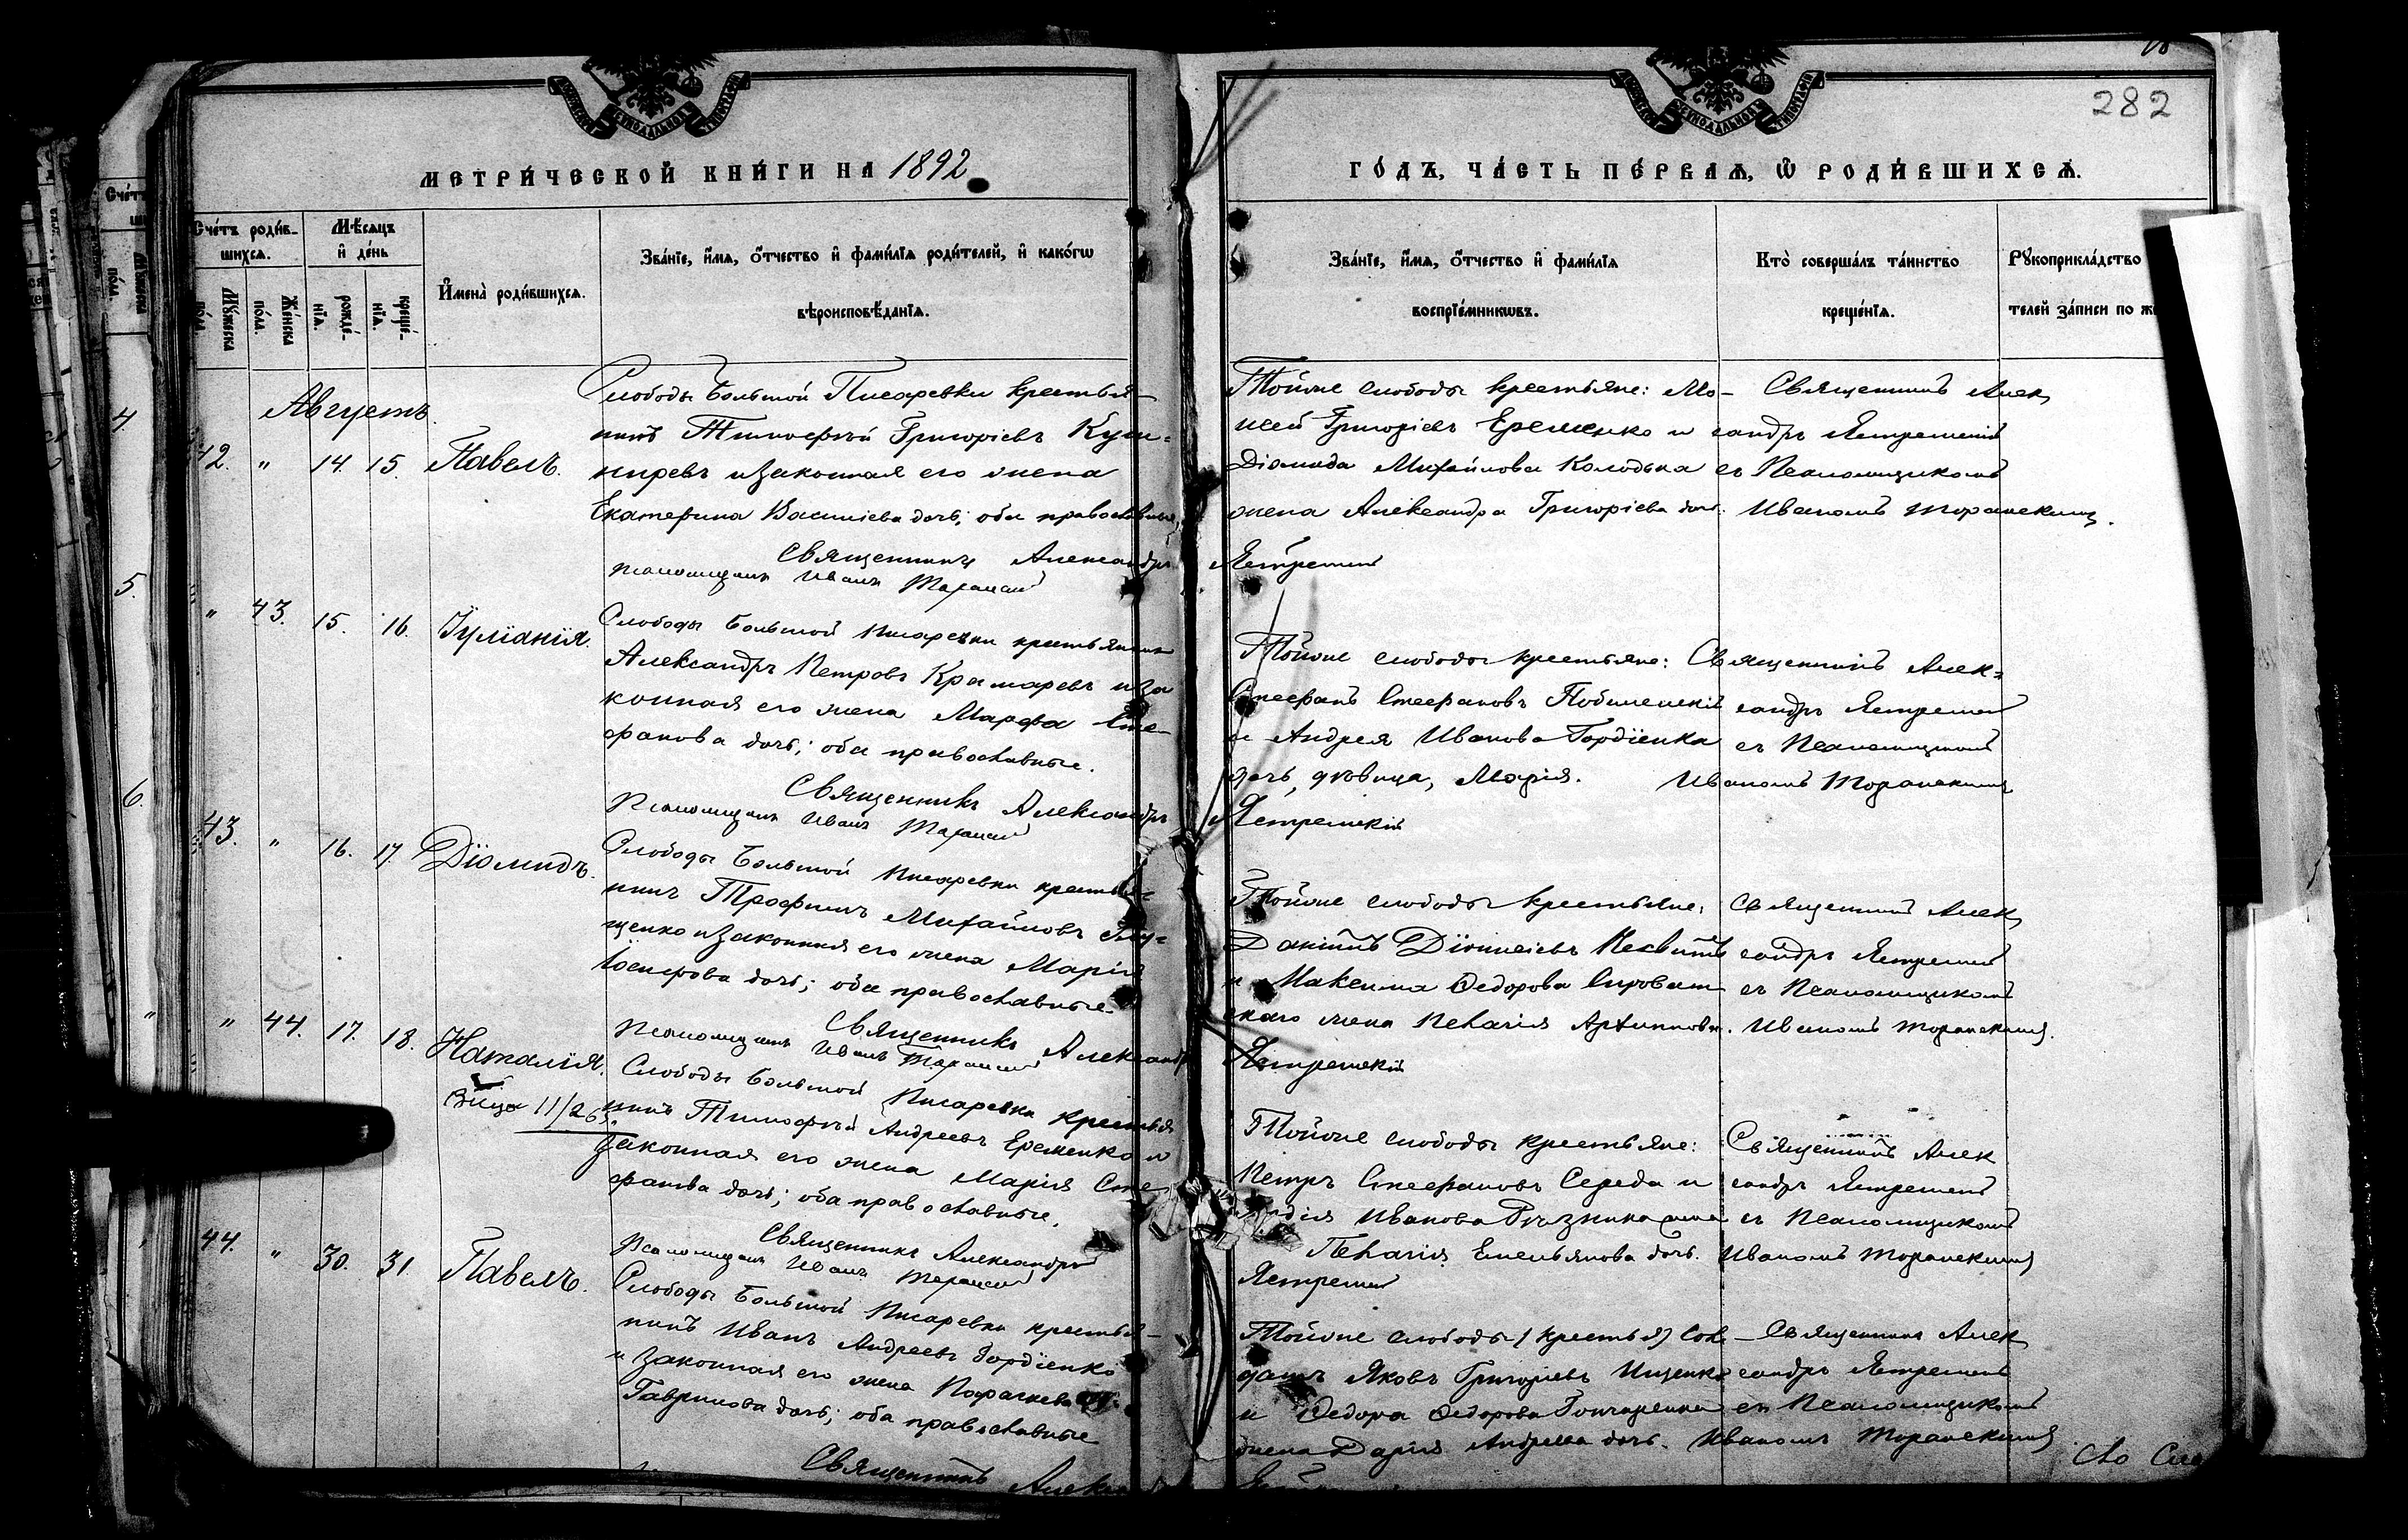 МЕТРИ́ЧЕСКОЙ КНИ́ГИ НА 1892
ГО́ДЪ, ЧА́СТЬ ПЕ́РВАѦ, Ѽ РОДИ́ВШИХСѦ.
282
Сче́тъ роди́в-
шихсѧ.
Мѣ́сѧцъ
и҆ де́нь
И҆мена̀ роди́вшихсѧ.
Зва́нїе, и҆́мѧ, ѻ҆́тчество и҆ фами́лїѧ роди́телей, и҆ како́гѡ
вѣроисповѣ́данїѧ.
Мꙋ́жеска
по́ла.
Же́нска
по́ла.
рожде́-
нїѧ.
креще́-
нїѧ.
Зва́нїе, и҆́мѧ, ѻ҆́тчество и҆ фами́лїѧ
воспрїе́мникѡвъ.
Кто̀ соверша́лъ та́инство
креще́нїѧ.
Рꙋкоприкла́дство
телей за́писи по
Августъ
42. " 14. 15. Павелъ.
Слободы Большой Писаревки крестья-
нинъ Тимофей Григоріевъ Куш-
ниревъ и законная его жена
Екатерина Василіева дочь; оба православные,
Священникъ Александръ Ястремскій
Псаломщикъ Иванъ
Тойже слободы крестьяне: Мо-
исей Григоріевъ Еременко и
Діомида Михайлова Колодька
жена Александра Григоріева дочь.
Священникъ Алек
сандръ Ястремскій
съ Псаломщикомъ
Иваномъ
" 43. 15. 16. Іуліанія.
Слободы Большой Писаревки крестьянинъ
Александръ Петровъ Крамаревъ и за
конная его жена Марфа Сте-
фанова дочь; оба православные.
Священникъ Александръ Ястремскій
Псаломщикъ Иванъ
Тойже слободы крестьяне:
Стефанъ Стефановъ
и Андрея Иванова Гордіенка
дочь, дѣвица, Марія.
Священникъ Алек-
сандръ Ястремскій
съ Псаломщикомъ
Иваномъ
43. " 16. 17. Діомидъ.
Слободы Большой Писаревки крестья-
нинъ Трофимъ Михайловъ
щенко и законная его жена Марія
Іосифова дочь; оба православные.
Священникъ Александръ Ястремскій
Псаломщикъ Иванъ
Тойже слободы крестьяне:
Даніилъ Діонисіевъ
и Максима Федорова Сироват
скаго жена Пелагія
Священникъ Алек
сандръ Ястремскій
съ Псаломщикомъ
Иваномъ
" 44. 17. 18. Наталія.
11/26
Слободы Большой Писаревки крестья
нинъ Тимофей Андреевъ Еременко и
законная его жена Марія Сте
фанова дочь; оба православные.
Священникъ Александръ Ястремскій
Псаломщикъ Иванъ
Тойже слободы крестьяне:
Петръ Стефановъ Середа и
Иванова
Пелагія Емельянова дочь.
Священникъ Алек
сандръ Ястремскій
съ Псаломщикомъ
Иваномъ
44. " 30. 31. Павелъ.
Слободы Большой Писаревки крестья-
нинъ Иванъ Андреевъ Гордіенко
и законная его жена Параскева
Гаврилова дочь; оба православные
Священникъ
Тойже слободы (крестья) Сол
датъ Яковъ Григоріевъ Ищенко
и Федора Федорова Гончаренка
жена Дарія Андреева дочь.
Священникъ Алек
сандръ Ястремскій
съ Псаломщикомъ
Иваномъ